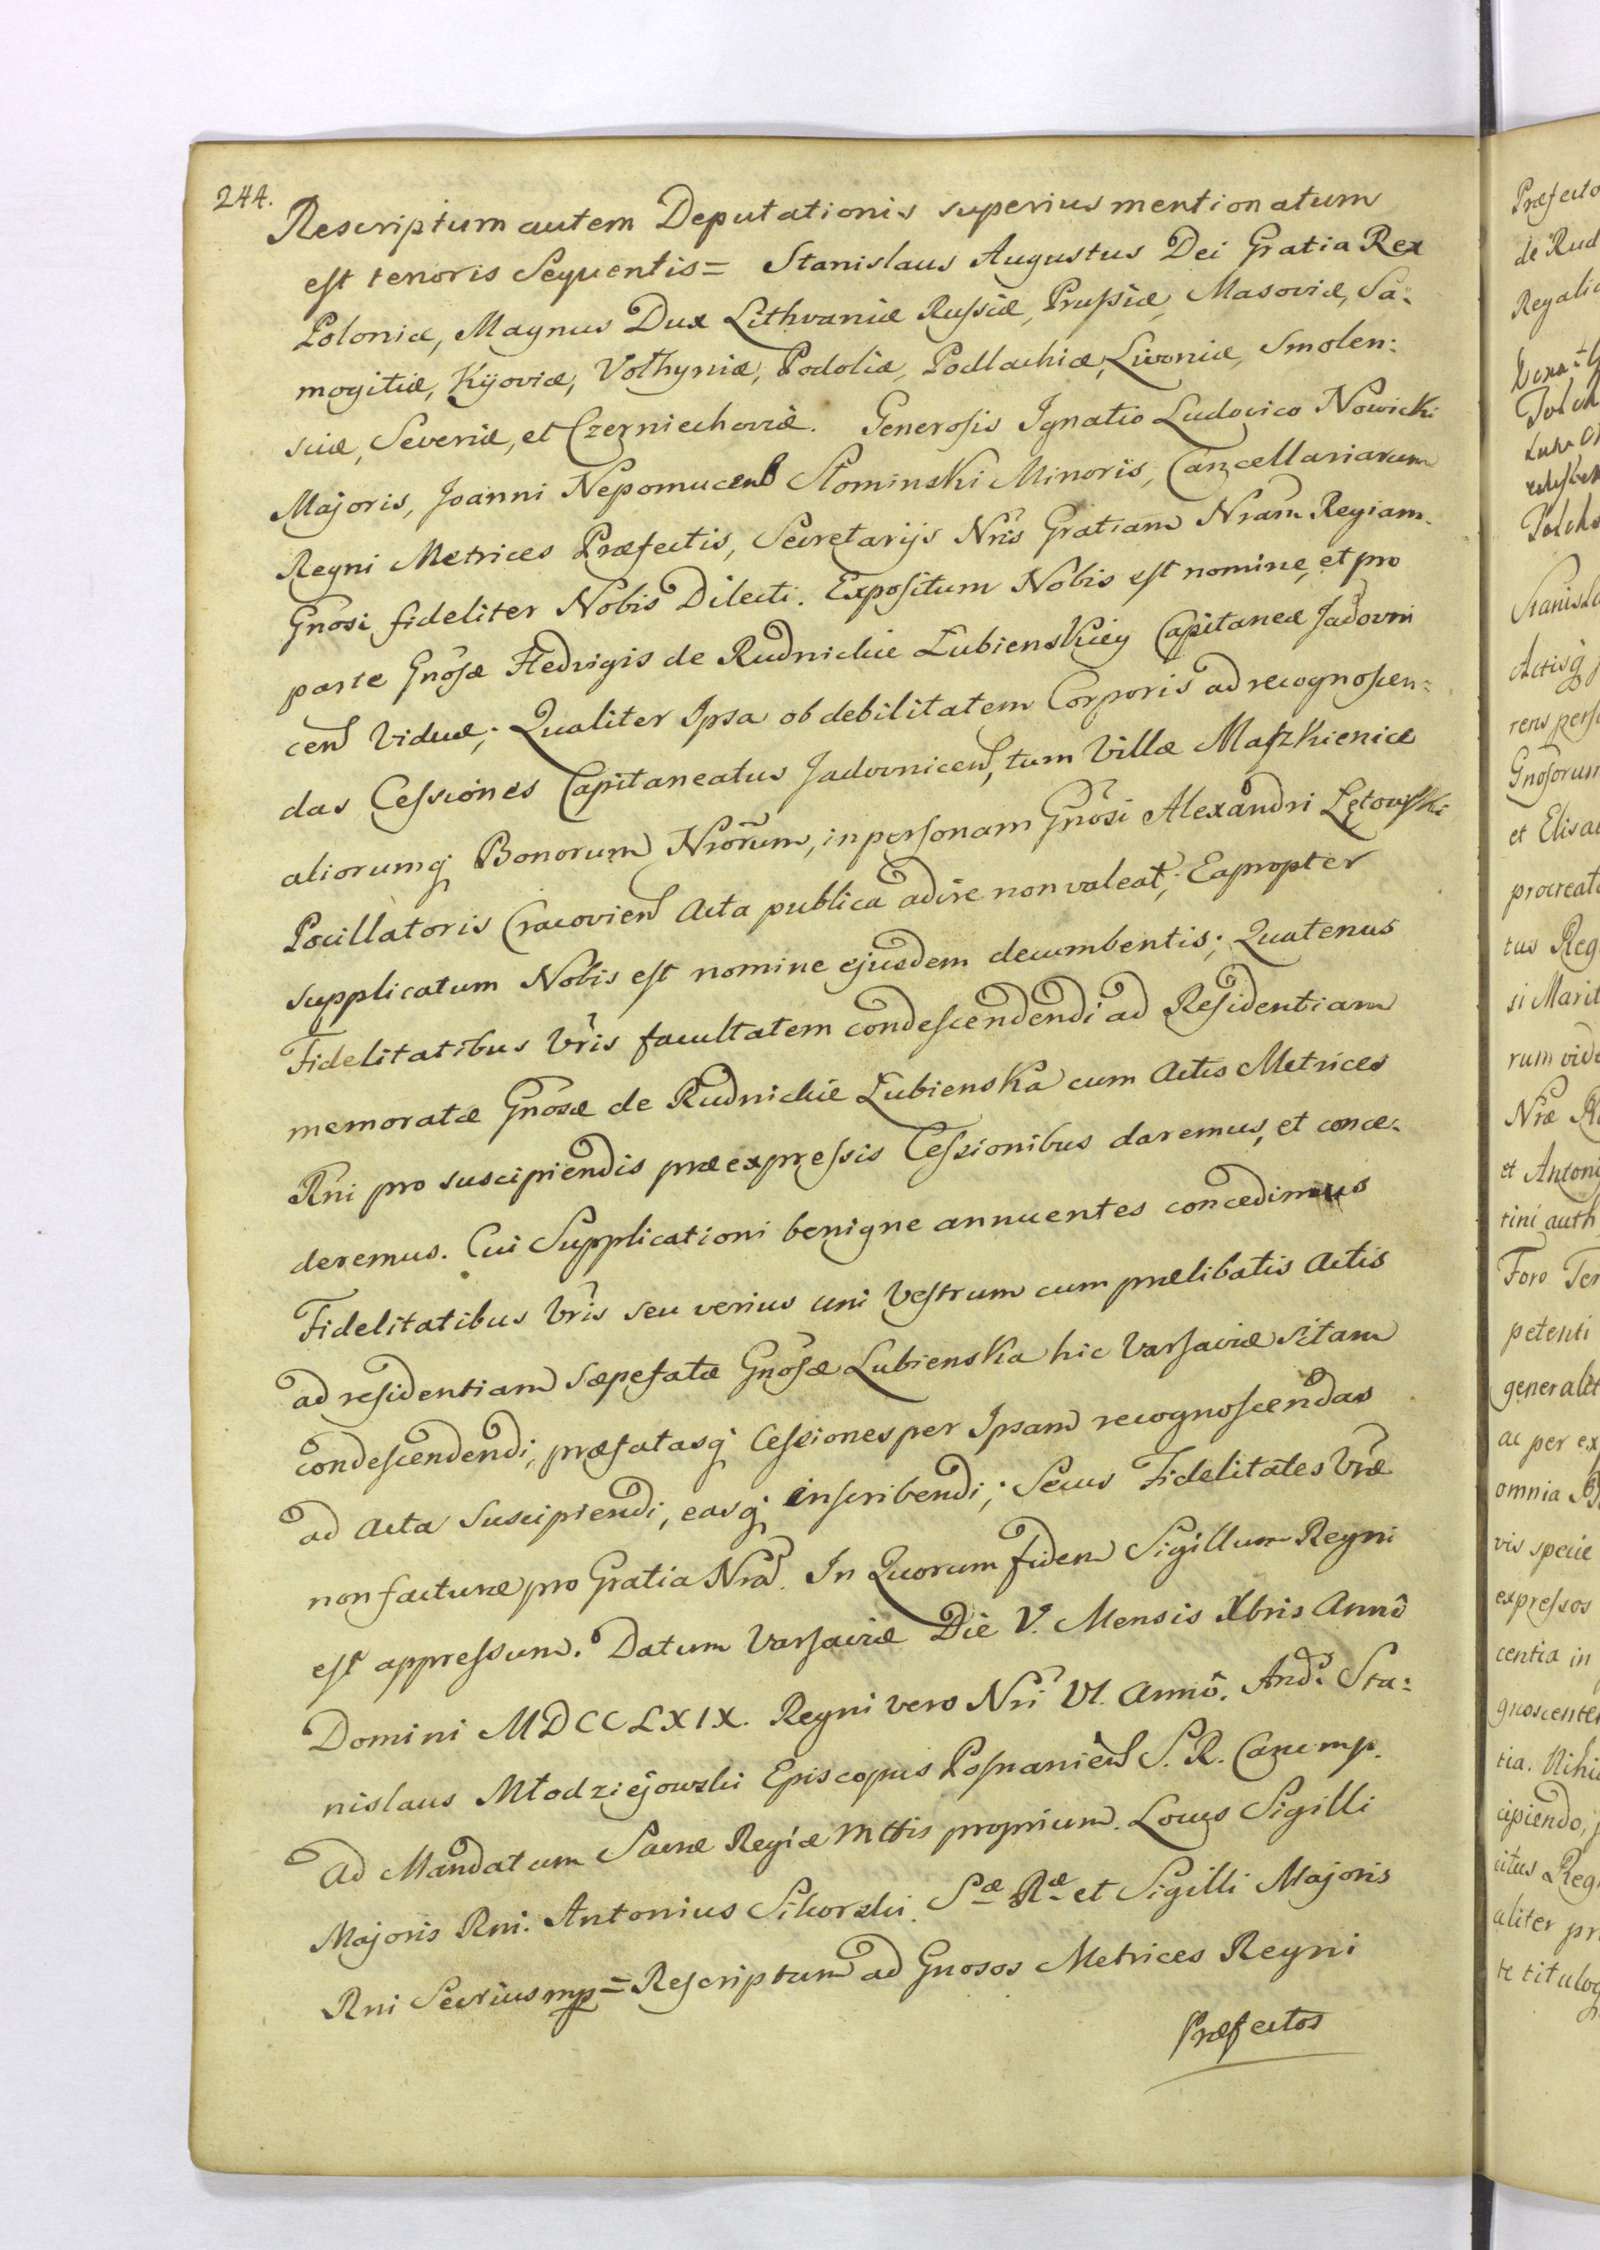 244.
Rescriptum autem Deputationis superius mentionatum
est tenoris Sequentis = Stanislaus Augustus Dei Gratia Rex
Poloniæ, Magnus Dux Lithvaniæ Russiæ, Prussiæ, Masoviæ, Sa:
mogitiæ, Kijoviæ, Volhyniæ, Podoliæ, Podlachiæ, Livoniæ, Smolen:
sciæ, Severiæ, et Czerniechoviæ. Generosis Ignatio Ludovico Nowicki
Majoris, Joanni Nepomuceno Słominski Minoris, Cancellariarum
Regni Metrices Præfectis, Secretarijs Nris Gratiam Nram Regiam.
Gnosi fideliter Nobis Dilecti. Expositum Nobis est nomine, et pro
parte Gnosæ Hedvigis de Rudnickie Łubienskiey Capitaneæ Jadovni
cen Viduæ; Qualiter Ipsa ob debilitatem Corporis ad recognoscen:
das Cessiones Capitaneatus Jadovnicen, tum Villæ Maszkienice
aliorumq Bonorum Nrorum, in personam Gnosi Alexandri Łętowski
Pocillatoris Cracovien Acta publica adire non valeat; Eapropter
supplicatum Nobis est nomine ejusdem decumbentis; Quatenus
Fidelitatibus Vris facultatem condescendendi ad Residentiam
memoratæ Gnosæ de Rudnickie Łubienska cum Actis Metrices
Rni pro suscipiendis præexpressis Cessionibus daremus, et conce:
deremus. Cui Supplicationi benigne annuentes concedimus
Fidelitatibus Vris seu verius uni Vestrum cum prælibatis Actis
ad residentiam sæpefatæ Gnosæ Lubienska hic Varsaviæ sitam
condescendendi, præfatasq Cessiones per Ipsam recognoscendas
ad Acta Suscipiendi, easq inscribendi; Secus Fidelitates Vræ
non facturæ pro Gratia Nra. In Quorum fidem Sigillum Regni
est appressum. Datum Varsaviæ Die V. Mensis Xbris Anno
Domini MDCCLXIX. Regni vero Nri VI. Anno. And: Sta:
nislaus Młodziejowski Episcopus Posnanien S. R. Canc mp.
Ad Mandatum Sacræ Regiæ Mttis proprium. Locus Sigilli
Majoris Rni. Antonius Sikorski. Sæ Ræ et Sigilli Majoris
Rni Secrius mp = Rescriptum ad Gnosos Metrices Regni
Præfectos
Præfecto
de Rud
Regalic
Polck
Stanisla
Actisq
rens perso
Gnosorum
et Elisa
procreat
tus Reg
si Marit
rum vid
Nræ
et Antoni
tini auth
Foro Ter
petenti
generalit
ac per ex
omnia
vis specie
expressos
centia in
gnoscente
tia. Nihi
cipiendo,
citus Reg
aliter pr
te titulo